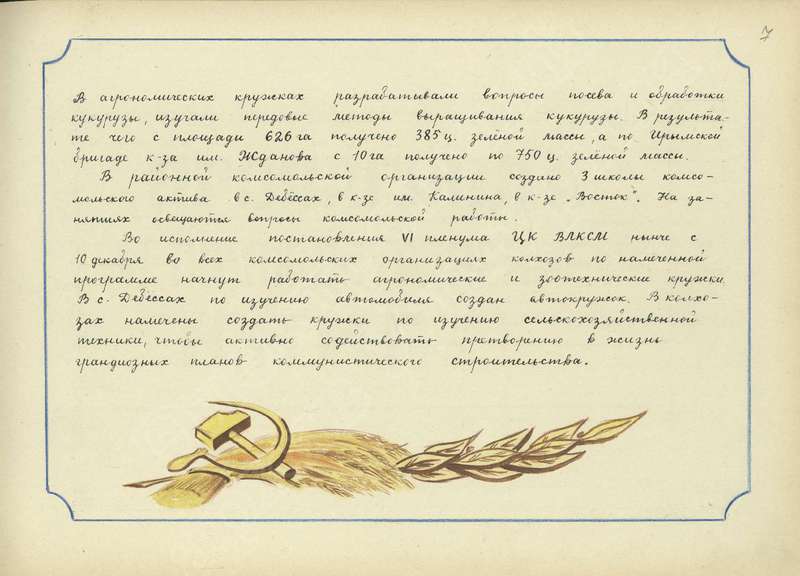 7
В агрономических кружках разрабатывали вопросы посева и обработки
кукурузы, изучали передовые методы выращивания кукурузы. В результа-
те чего с площади 626 га получено 385 ц. зелёной массы, а по Ирымской
бригаде к-за им. Жданова с 10 га получено по 750 ц. зелёной массы.
В районной комсомольской организации создано 3 школы комсо-
мольского актива в с. Дебёссах, в к-зе им. Калинина, в к-зе „Восток". На за-
нятиях освещаются вопросы комсомольской работы.
Во исполнение постановления VI пленума ЦК ВЛКСМ нынче с
10 декабря во всех комсомольских организациях колхозов по намеченной
программе начнут работать агрономические и зоотехнические кружки.
В с. Дебёссах по изучению автомобиля создан автокружок. В колхо-
зах намечены создать кружки по изучению сельскохозяйственной
техники, чтобы активно содействовать претворению в жизнь
грандиозных планов коммунистического строительства.